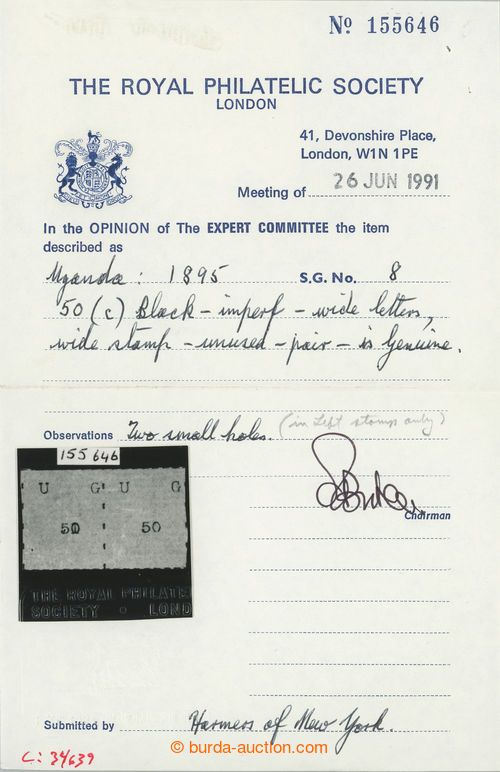 Nº 155646
THE ROYAL PHILATELIC SOCIETY
LONDON
41, Devonshire Place,
London, W1N 1PE
Meeting of 26 JUN 1991
In the OPINION of The EXPERT COMMITTEE the item
described as
Uganda: 1895 S.G. No. 8
50 (c) Black - imperf - wide letters,
wide stamp - unused - pair - is Genuine.
Observations Two small holes. (in left stamp only)
155646
U G U G
50 50
Chairman
THE ROYAL PHILATE
SOCIETY · LOND
Submitted by Harmers of New York.
C: 34639
© burda-auction.com